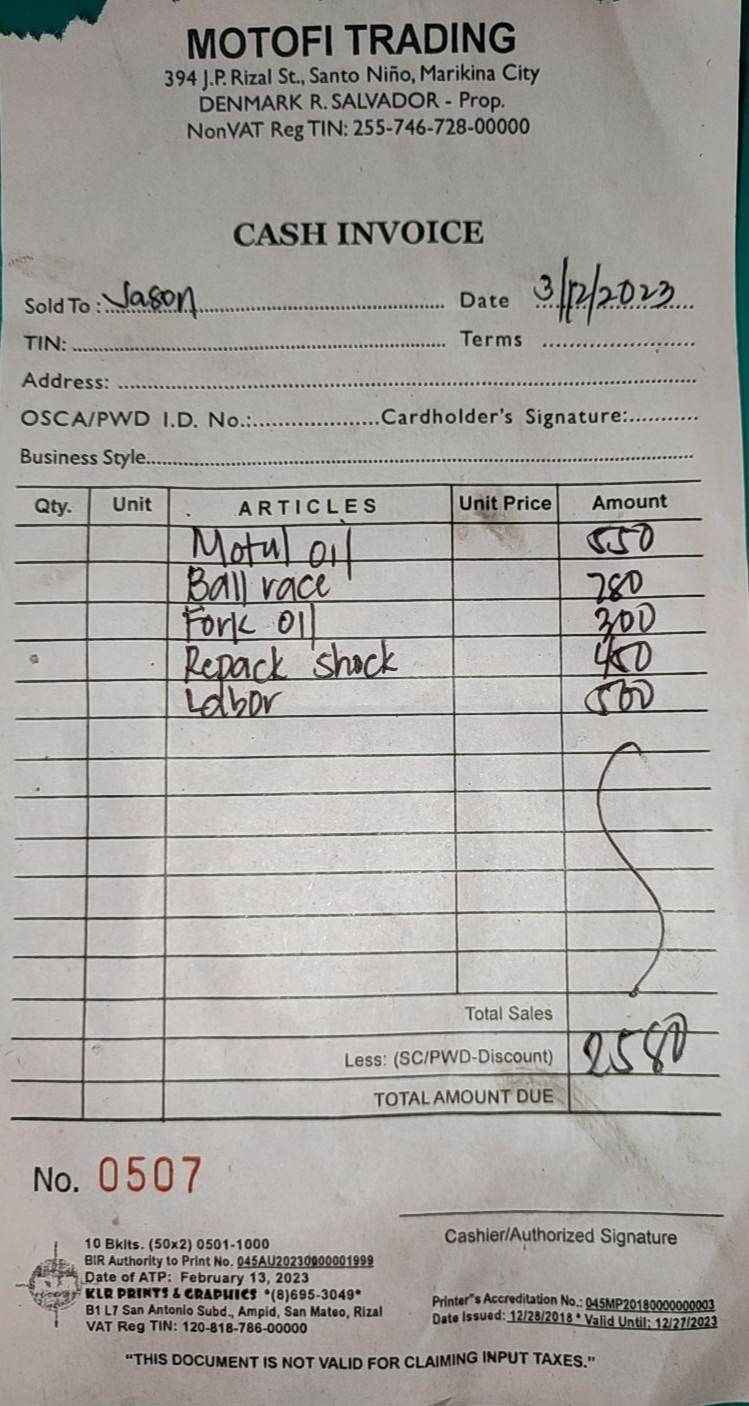 MOTOFI TRADING
394 J.P. Rizal St., Santo Niño, Marikina City
DENMARK R. SALVADOR - Prop.
NonVAT Reg TIN: 255-746-728-00000
CASH INVOICE
Sold To : Jason Date 3/12/2023
TIN: Terms
Address:
OSCA/PWD I.D. No.: Cardholder's Signature:
Business Style
Qty. Unit ARTICLES Unit Price Amount
Motul oil 550
Ball race 780
Fork oil 300
Repack shock 450
Labor 500
Total Sales
Less: (SC/PWD-Discount) 2580
TOTAL AMOUNT DUE
No. 0507
Cashier/Authorized Signature
10 Bklts. (50x2) 0501-1000
BIR Authority to Print No. 045AU20230000001999
Date of ATP: February 13, 2023
KLR PRINTS & GRAPHICS *(8)695-3049*
B1 L7 San Antonio Subd., Ampid, San Mateo, Rizal
VAT Reg TIN: 120-818-786-00000
Printer"s Accreditation No.: 045MP20180000000003
Date Issued: 12/28/2018 * Valid Until: 12/27/2023
"THIS DOCUMENT IS NOT VALID FOR CLAIMING INPUT TAXES."